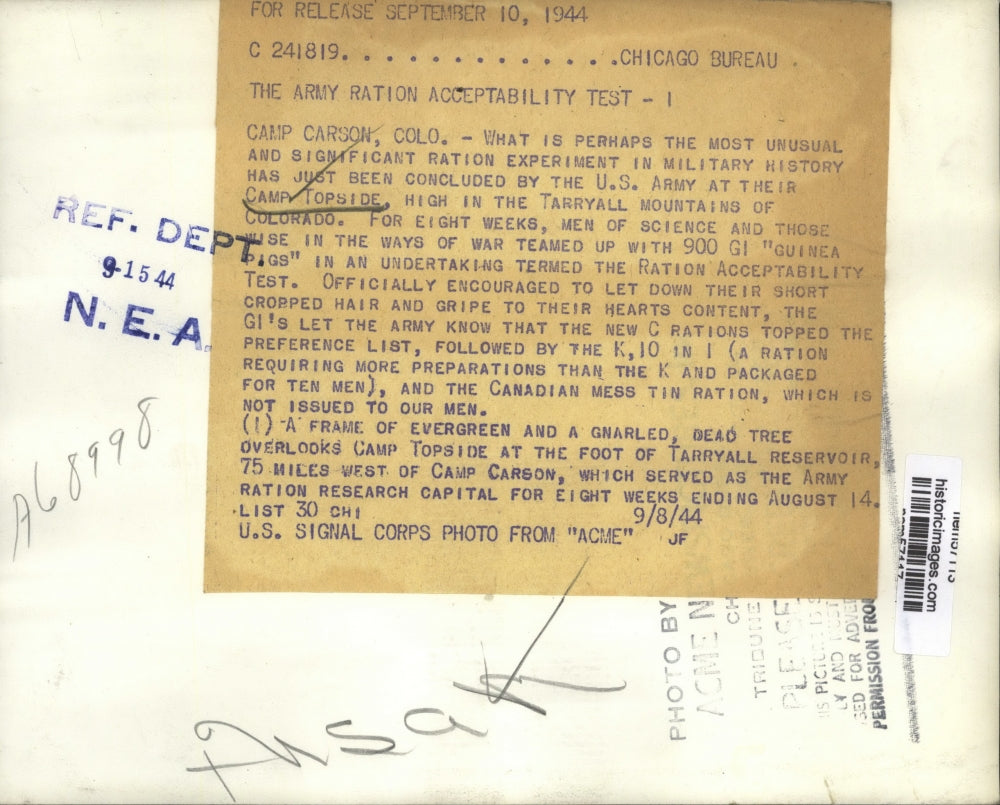 FOR RELEASE SEPTEMBER 10, 1944
C 241819. . . . . . . . . . . . . .CHICAGO BUREAU .
THE ARMY RATION ACCEPTABILITY TEST - 1
CAMP CARSON, COLO. - WHAT IS PERHAPS THE MOST UNUSUAL
AND SIGNIFICANT RATION EXPERIMENT IN MILITARY HISTORY
HAS JUST BEEN CONCLUDED BY THE U.S. ARMY AT THEIR
CAMP TOPSIDE, HIGH IN THE TARRYALL MOUNTAINS OF
COLORADO. FOR EIGHT WEEKS, MEN OF SCIENCE AND THOSE
WISE IN THE WAYS OF WAR TEAMED UP WITH 900 GI "GUINEA
PIGS" IN AN UNDERTAKING TERMED THE RATION ACCEPTABILITY
TEST. OFFICIALLY ENCOURAGED TO LET DOWN THEIR SHORT
CROPPED HAIR AND GRIPE TO THEIR HEARTS CONTENT, THE
GI'S LET THE ARMY KNOW THAT THE NEW C RATIONS TOPPED THE
PREFERENCE LIST, FOLLOWED BY THE K, 10 IN 1 (A RATION
REQUIRING MORE PREPARATIONS THAN THE K AND PACKAGED
FOR TEN MEN), AND THE CANADIAN MESS TIN RATION, WHICH IS
NOT ISSUED TO OUR MEN.
(1) A FRAME OF EVERGREEN AND A GNARLED, DEAD TREE
OVERLOOKS CAMP TOPSIDE AT THE FOOT OF TARRYALL RESERVOIR,
75 MILES WEST OF CAMP CARSON, WHICH SERVED AS THE ARMY
RATION RESEARCH CAPITAL FOR EIGHT WEEKS ENDING AUGUST 14.
LIST 30 CHI 9/8/44
U.S. SIGNAL CORPS PHOTO FROM "ACME" JF
REF. DEPT.
9-15 44
N. E. A.
A68998
historicimages.com
PHOTO BY
ACME N
CH
TRIBUNE
PLEASE
IS PICTURE IS
LY AND
SED FOR ADVE
PERMISSION FRO